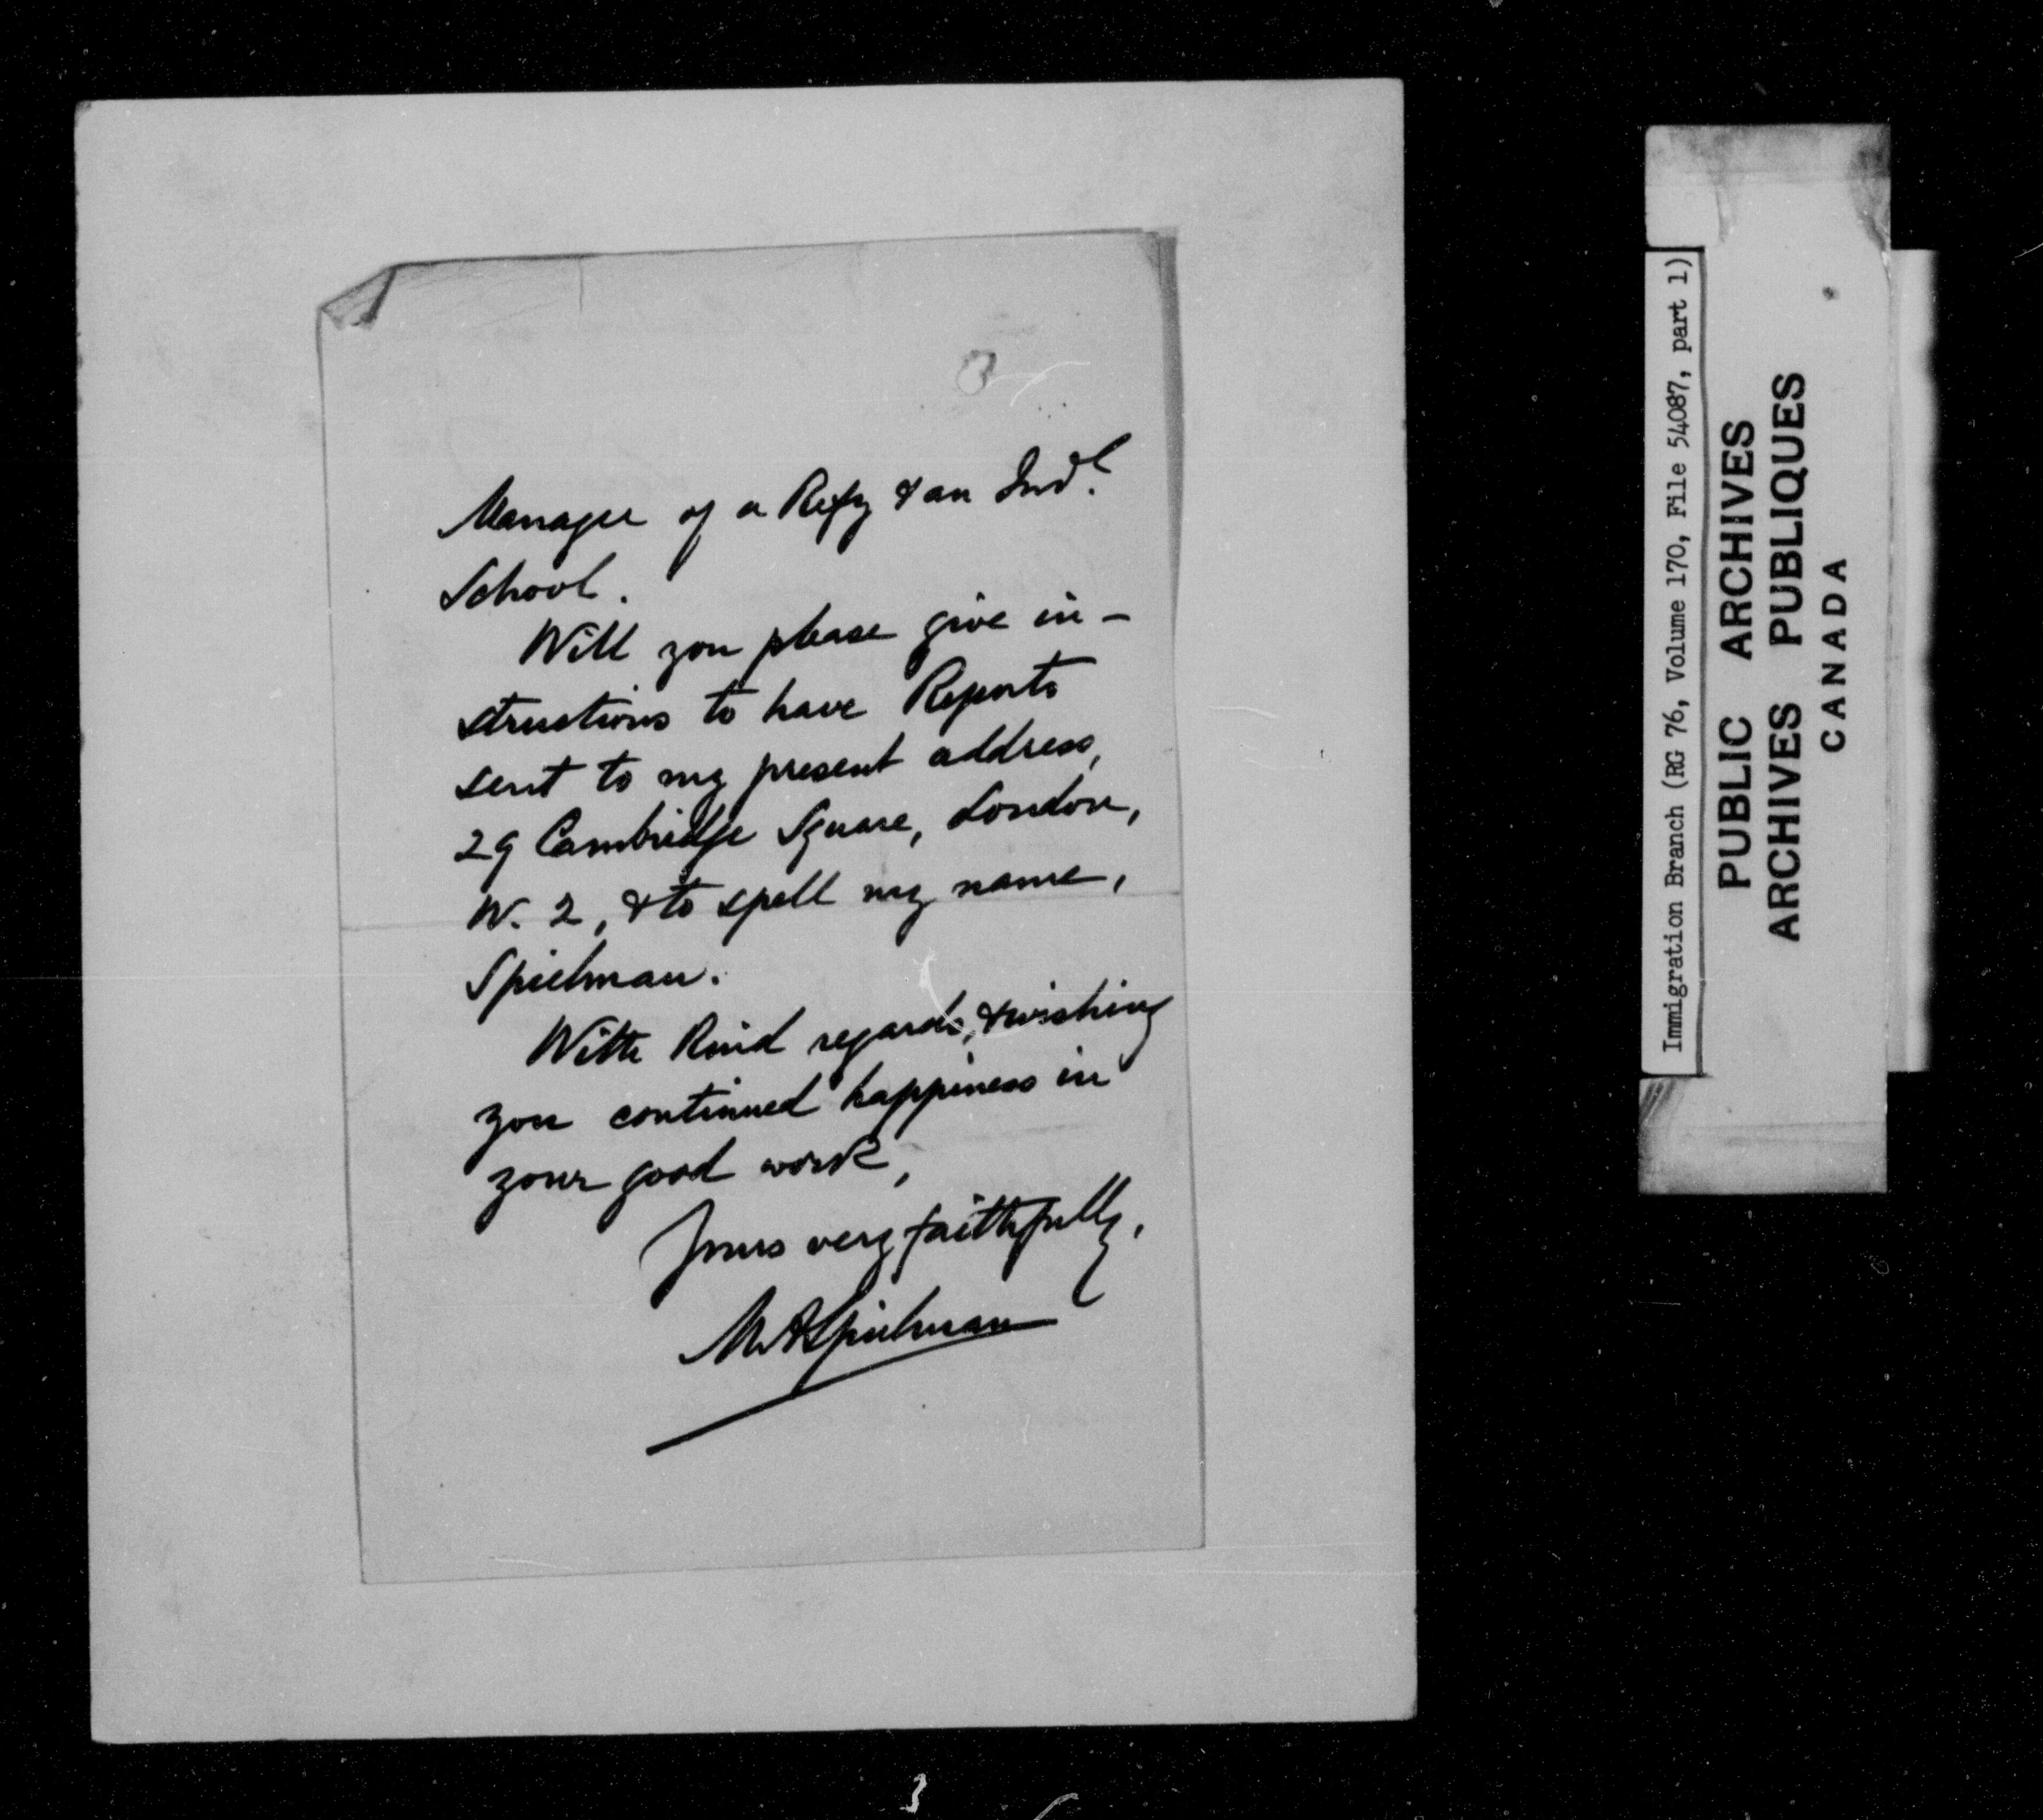 Manager of a Refy & an Indl.
School.
Will you please give in-
structions to have Reports
sent to my present address,
29 Cambridge Square, London,
W. 2, & to spell my name,
Spielman.
With kind regards, & wishing
you continued happiness in
your good work,
Yours very faithfully,
M A Spielman
Immigration Branch (RG 76, Volume 170, File 54087, part 1)
PUBLIC ARCHIVES
ARCHIVES PUBLIQUES
CANADA
3